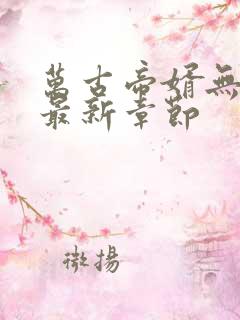 萬古帝婿無
最新章節
微揚